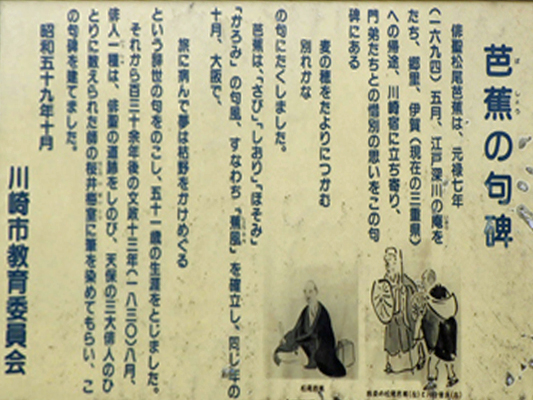 芭蕉の句碑
ばしょう
俳聖松尾芭蕉は、元禄七年
(一六九四)五月、江戸深川の庵を
たち、郷里、伊賀(現在の三重県)
への帰途、川崎宿に立ち寄り、
門弟たちとの惜別の思いをこの句
碑にある
麦の穂をたよりにつかむ
別れかな
の句にたくしました。
芭蕉は、「さび」「しおり」「ほそみ」
「かろみ」の句風、すなわち"蕉風"を確立し、同じ年の
十月、大阪で、
旅に病んで夢は枯野をかけめぐる
という辞世の句をのこし、五十一歳の生涯をとじました。
それから百三十余年後の文政十三年(一八三〇)八月、
俳人一種は、俳聖の道跡をしのび、天保の三大俳人のひ
とりに数えられた師の桜井梅室に筆を染めてもらい、こ
の句碑を建てました。
昭和五十九年十月
川崎市教育委員会
松尾芭蕉